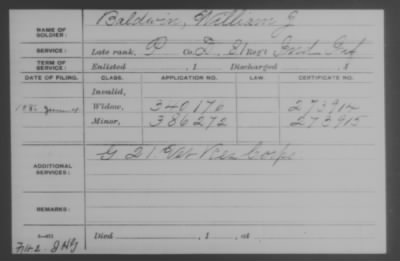 NAME OF SOLDIER: Baldwin, William G
SERVICE: Late rank, P Co. D, 21 Reg't Ind. Inf
TERM OF SERVICE: Enlisted , 1 Discharged , 1
DATE OF FILING. CLASS. APPLICATION NO. LAW. CERTIFICATE NO.
Invalid,
Widow, 340,170 273914
Minor, 386272 273915
ADDITIONAL SERVICES: G 21" Vet Res Corps
REMARKS:
Died , 1 , at